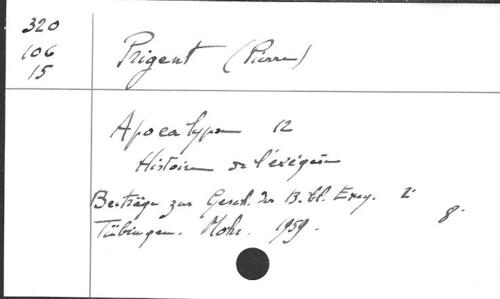 320
106
15
Prigent (Pierre)
Apocalypse 12
Histoire de l'éxégèse
Beiträge zur Gesch. der Bibl. Exeg. 2
8°
Tübingen. Mohr. 1959.